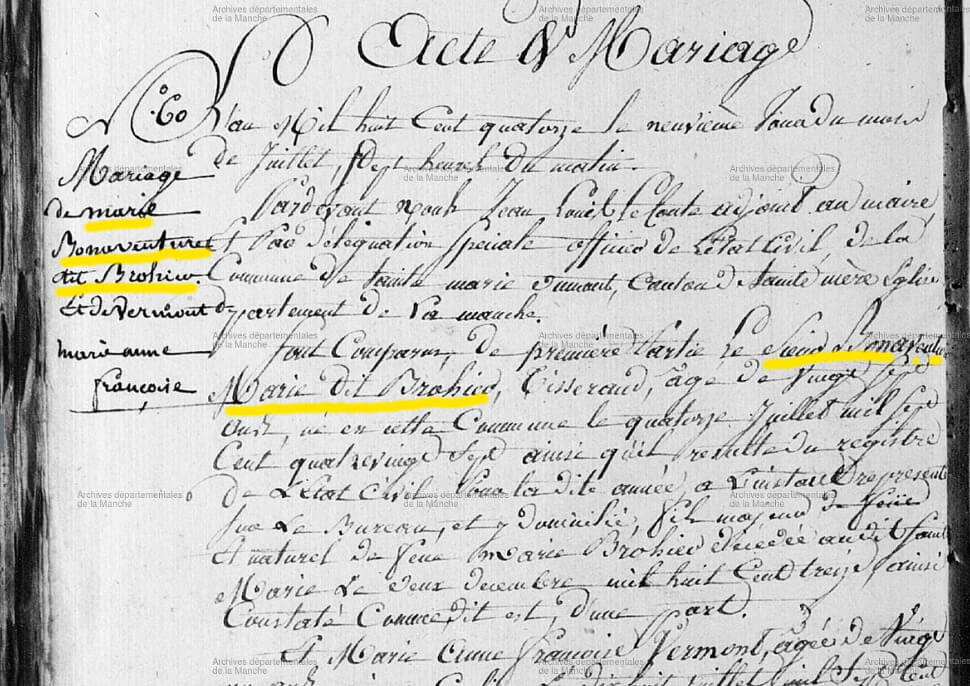 Acte de Mariage
N.° 60
Mariage
de marie
Bonaventure
dit Brohier
Et de Vermont
marie anne
françoise
L'an Mil huit Cent quatorze le neuvieme Jour du mois
de Juillet, Sept heures du matin.
Pardevant nous Jean Louis le Conte adjoint au maire,
Et Par délégation speciale officier de L'Etat Civil, de la
Commune de Sainte marie dumont, Canton de Sainte mère Eglise
département de La manche.
Sont Comparus, de première Partie Le Sieur Bonaventure
Marie dit Brohier, Tisserand, âgé de Vingt Sept
ans, né en cette Commune le quatorze Juillet mil Sept
Cent quatrevingt Sept ainsi qu'il resulte du registre
de L'Etat Civil Pour la dite année, a L'instant representé
Sur Le Bureau, et y domicilié, fils majeur de feüe
Et naturel de feue Marie Brohier décedée audit Sainte
Marie Le deux decembre mil huit Cent treize, ainsi
Constaté Comme dit est, d'une part.
Et Marie Anne françoise Vermont, agée de Vingt
Archives départementales
de la Manche